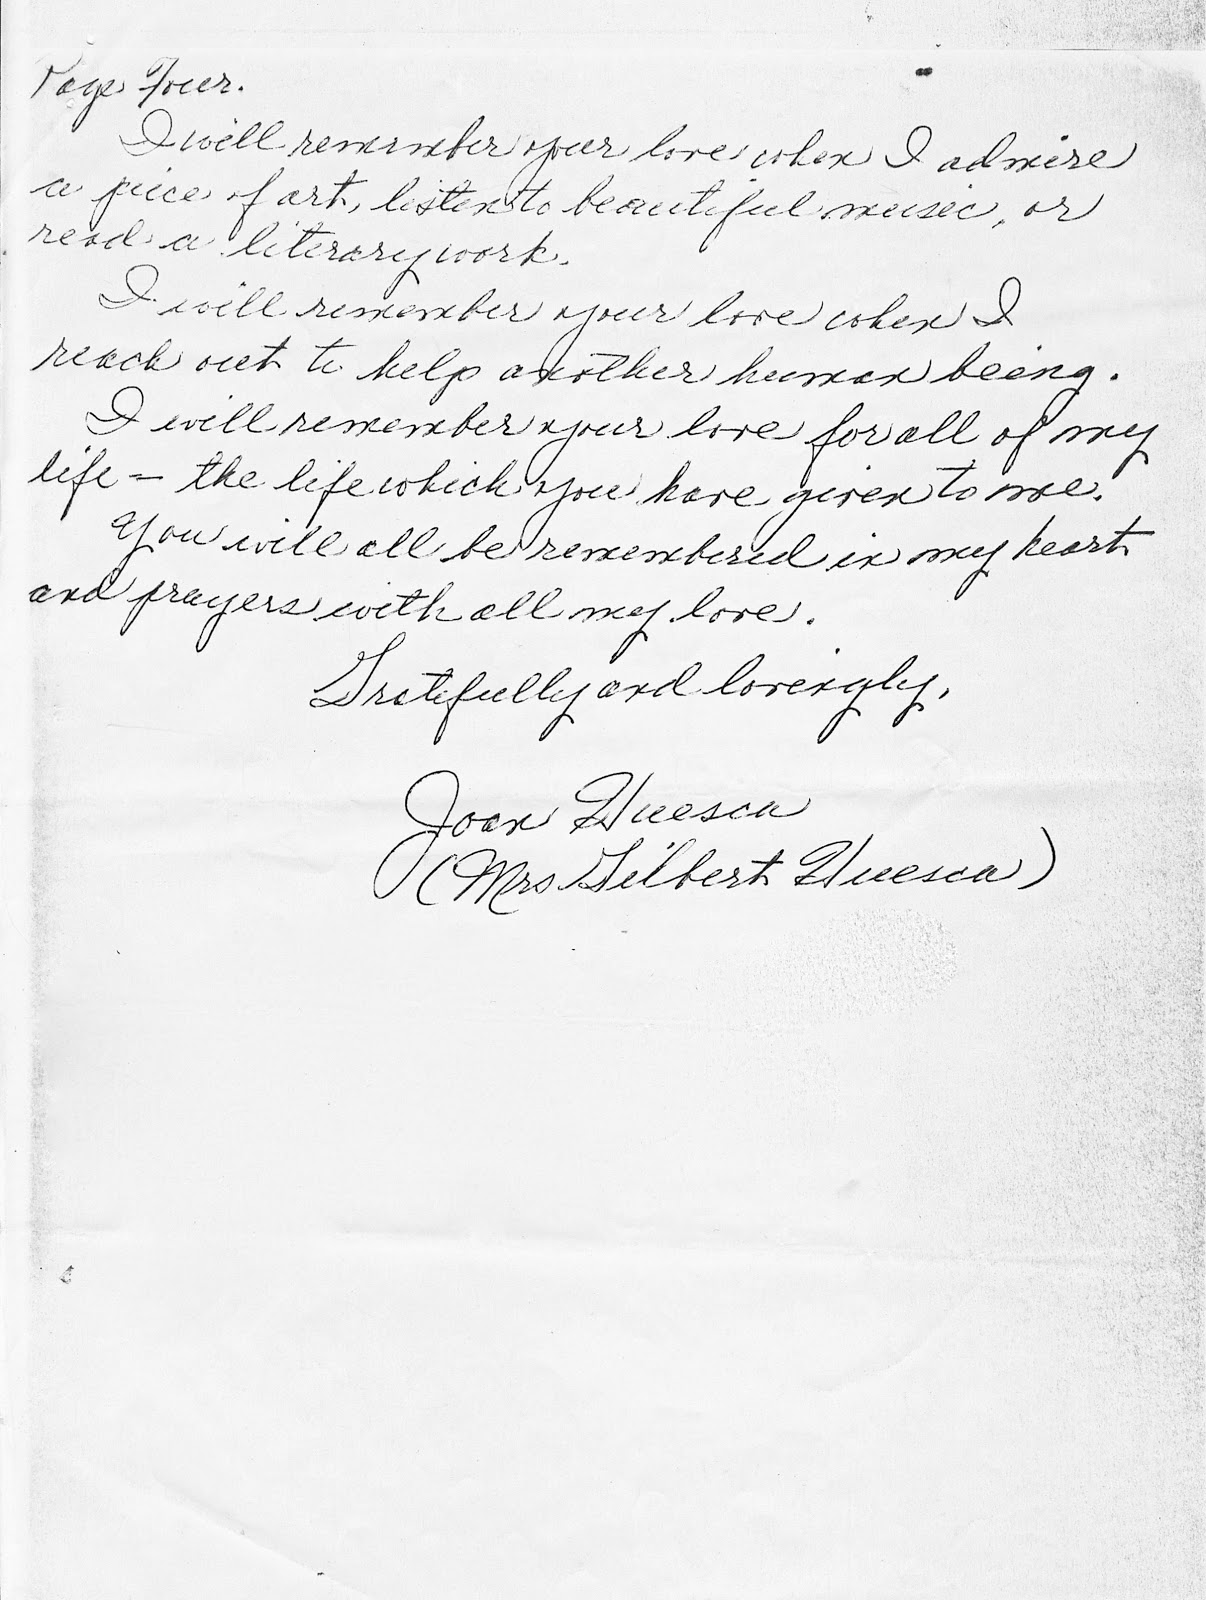 Page Four.
I will remember your love when I admire
a piece of art, listen to beautiful music, or
read a literary work.
I will remember your love when I
reach out to help another human being.
I will remember your love for all of my
life - the life which you have given to me.
You will all be remembered in my heart
and prayers with all my love.
Gratefully and lovingly,
Joan Huesca
(Mrs Gilbert Huesca)